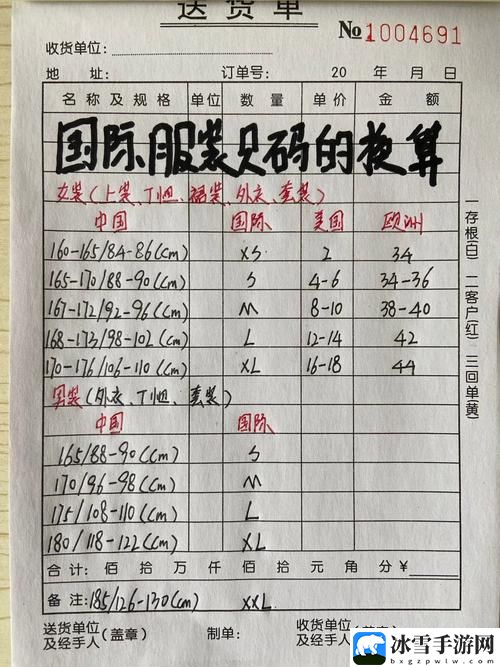 送货单
№1004691
收货单位:
地 址: 订单号: 20 年 月 日
名称及规格 单位 数量 单价 金额
国际服装尺码的换算
女装(上装、T恤、裙装、外衣、套装)
中国 国际 美国 欧洲
160-165/84-86(cm) XS 2 34
165-170/88-90(cm) S 4-6 34-36
167-172/92-96(cm) M 8-10 38-40
168-173/98-102(cm) L 12-14 42
170-176/106-110(cm) XL 16-18 44
男装(外衣、T恤、套装)
中国 国际
165/88-90(cm) S
170/96-98(cm) M
175/108-110(cm) L
180/118-122(cm) XL
合计: 佰 拾 万 仟 佰 拾 元 角 分 ¥
备注: 185/126-130(cm) XXL
送货单位及经手人(盖章) 制单: 收货单位及经手人
一存根(白) 二客户(红) 三回单(黄)
冰雪手游网
bxgzpwlw.com